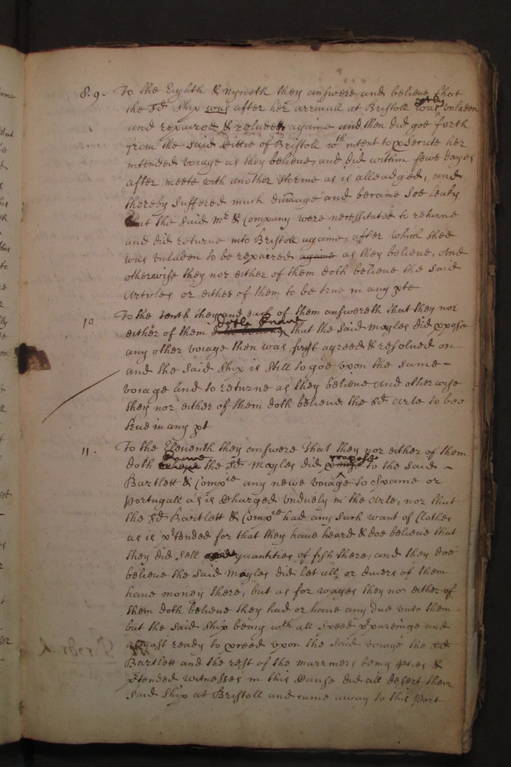 8. 9. To the Eighth & Nyneth they answere and beleeve that
the sd ship was after her arrivall at Bristoll unladen
and repaired & againe and then did goe forth
from the said Cittie of Bristoll wth intent to psecute her
intended voiage as they beleive, and did within fewe dayes
after meete with another storme as is alleadged, and
thereby suffered much damage and became soe leaky
that the said Mr & Company were necessitated to returne
and did returne into Bristoll againe, after which shee
was unladen to be repaired againe as they beleive, And
otherwise they nor either of them doth beleeve the said
articles or either of them to be true in any pte
10 To the tenth they and each of them answereth that they nor
either of them doth knowe that the said Mayles did ppose
any other voiage then was first agreed & resolved on
and the said ship is still to goe upon the same
voiage and to returne as they beleive and otherwise
they nor either of them doth beleeve the sd arle to bee
true in any pt
11. To the Eleventh they answere That they nor either of them
doth the sd Mayles did to the said
Bartlett & Compie any newe voiage to Spaine or
Portugall as is Charged unduely in the arle, nor that
the sd Bartlett & Compie had any such want of Clothes
as is ptended for that they have heard & doe beleeve that
they did sell quantities of fish there, and they doe
beleive the said Mayles did let all, or divers of them
have money there, but as for wages they nor either of
them doth beleive they had or have any due unto them
but the said ship being wth all speed and
ready to pceed upon the said voiage the sd
Bartlett and the rest of the marriners being &
ptended witnesses in this Cause did all desert their
said ship at Bristoll and came away to this Port